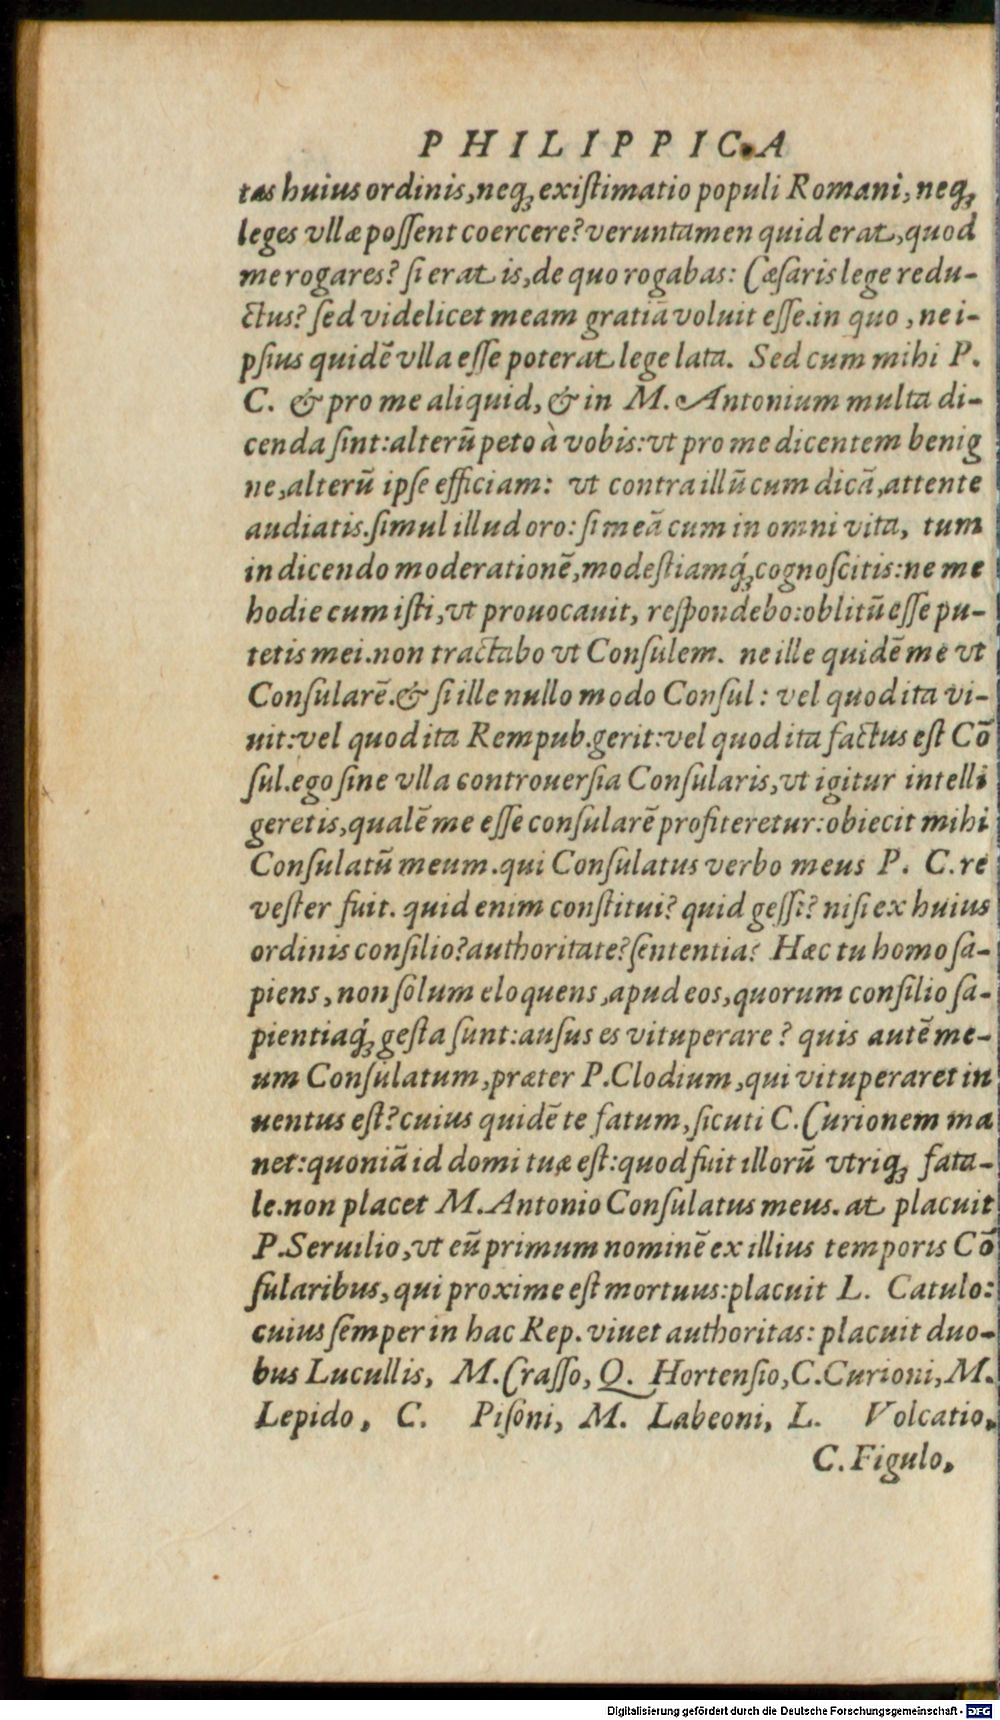 PHILIPPICA
tas huius ordinis, neqꝫ existimatio populi Romani, neqꝫ
leges vllæ possent coercere? veruntamen quid erat, quod
me rogares? si erat is, de quo rogabas: Cæsaris lege redu-
ctus? sed videlicet meam gratiā voluit esse. in quo, ne i-
psius quidē vlla esse poterat lege lata. Sed cum mihi P.
C. & pro me aliquid, & in M. Antonium multa di-
cenda sint: alterū peto à vobis: vt pro me dicentem benig
ne, alterū ipse efficiam: vt contra illū cum dicā, attente
audiatis. simul illud oro: si meā cum in omni vita, tum
in dicendo moderationē, modestiamq́ꝫ cognoscitis: ne me
hodie cum isti, vt prouocauit, respondebo: oblitū esse pu-
tetis mei. non tractabo vt Consulem. ne ille quidē me vt
Consularē. & si ille nullo modo Consul: vel quod ita vi-
uit: vel quod ita Rempub. gerit: vel quod ita factus est Cō
sul. ego sine vlla controuersia Consularis, vt igitur intelli
geretis, qualē me esse consularē profiteretur: obiecit mihi
Consulatū meum. qui Consulatus verbo meus P. C. re
vester fuit. quid enim constitui? quid gessi? nisi ex huius
ordinis consilio? authoritate? sententia? Hæc tu homo sa-
piens, non solum eloquens, apud eos, quorum consilio sa-
pientiaq́ꝫ gesta sunt: ausus es vituperare? quis autē me-
um Consulatum, præter P. Clodium, qui vituperaret in
uentus est? cuius quidē te fatum, sicuti C. Curionem ma
net: quoniā id domi tuæ est: quod fuit illorū vtriqꝫ fata-
le. non placet M. Antonio Consulatus meus. at placuit
P. Seruilio, vt eū primum nominē ex illius temporis Cō
sularibus, qui proxime est mortuus: placuit L. Catulo:
cuius semper in hac Rep. viuet authoritas: placuit duo-
bus Lucullis, M. Crasso, Q. Hortensio, C. Curioni, M.
Lepido, C. Pisoni, M. Labeoni, L. Volcatio,
C. Figulo,
Digitalisierung gefördert durch die Deutsche Forschungsgemeinschaft - DFG